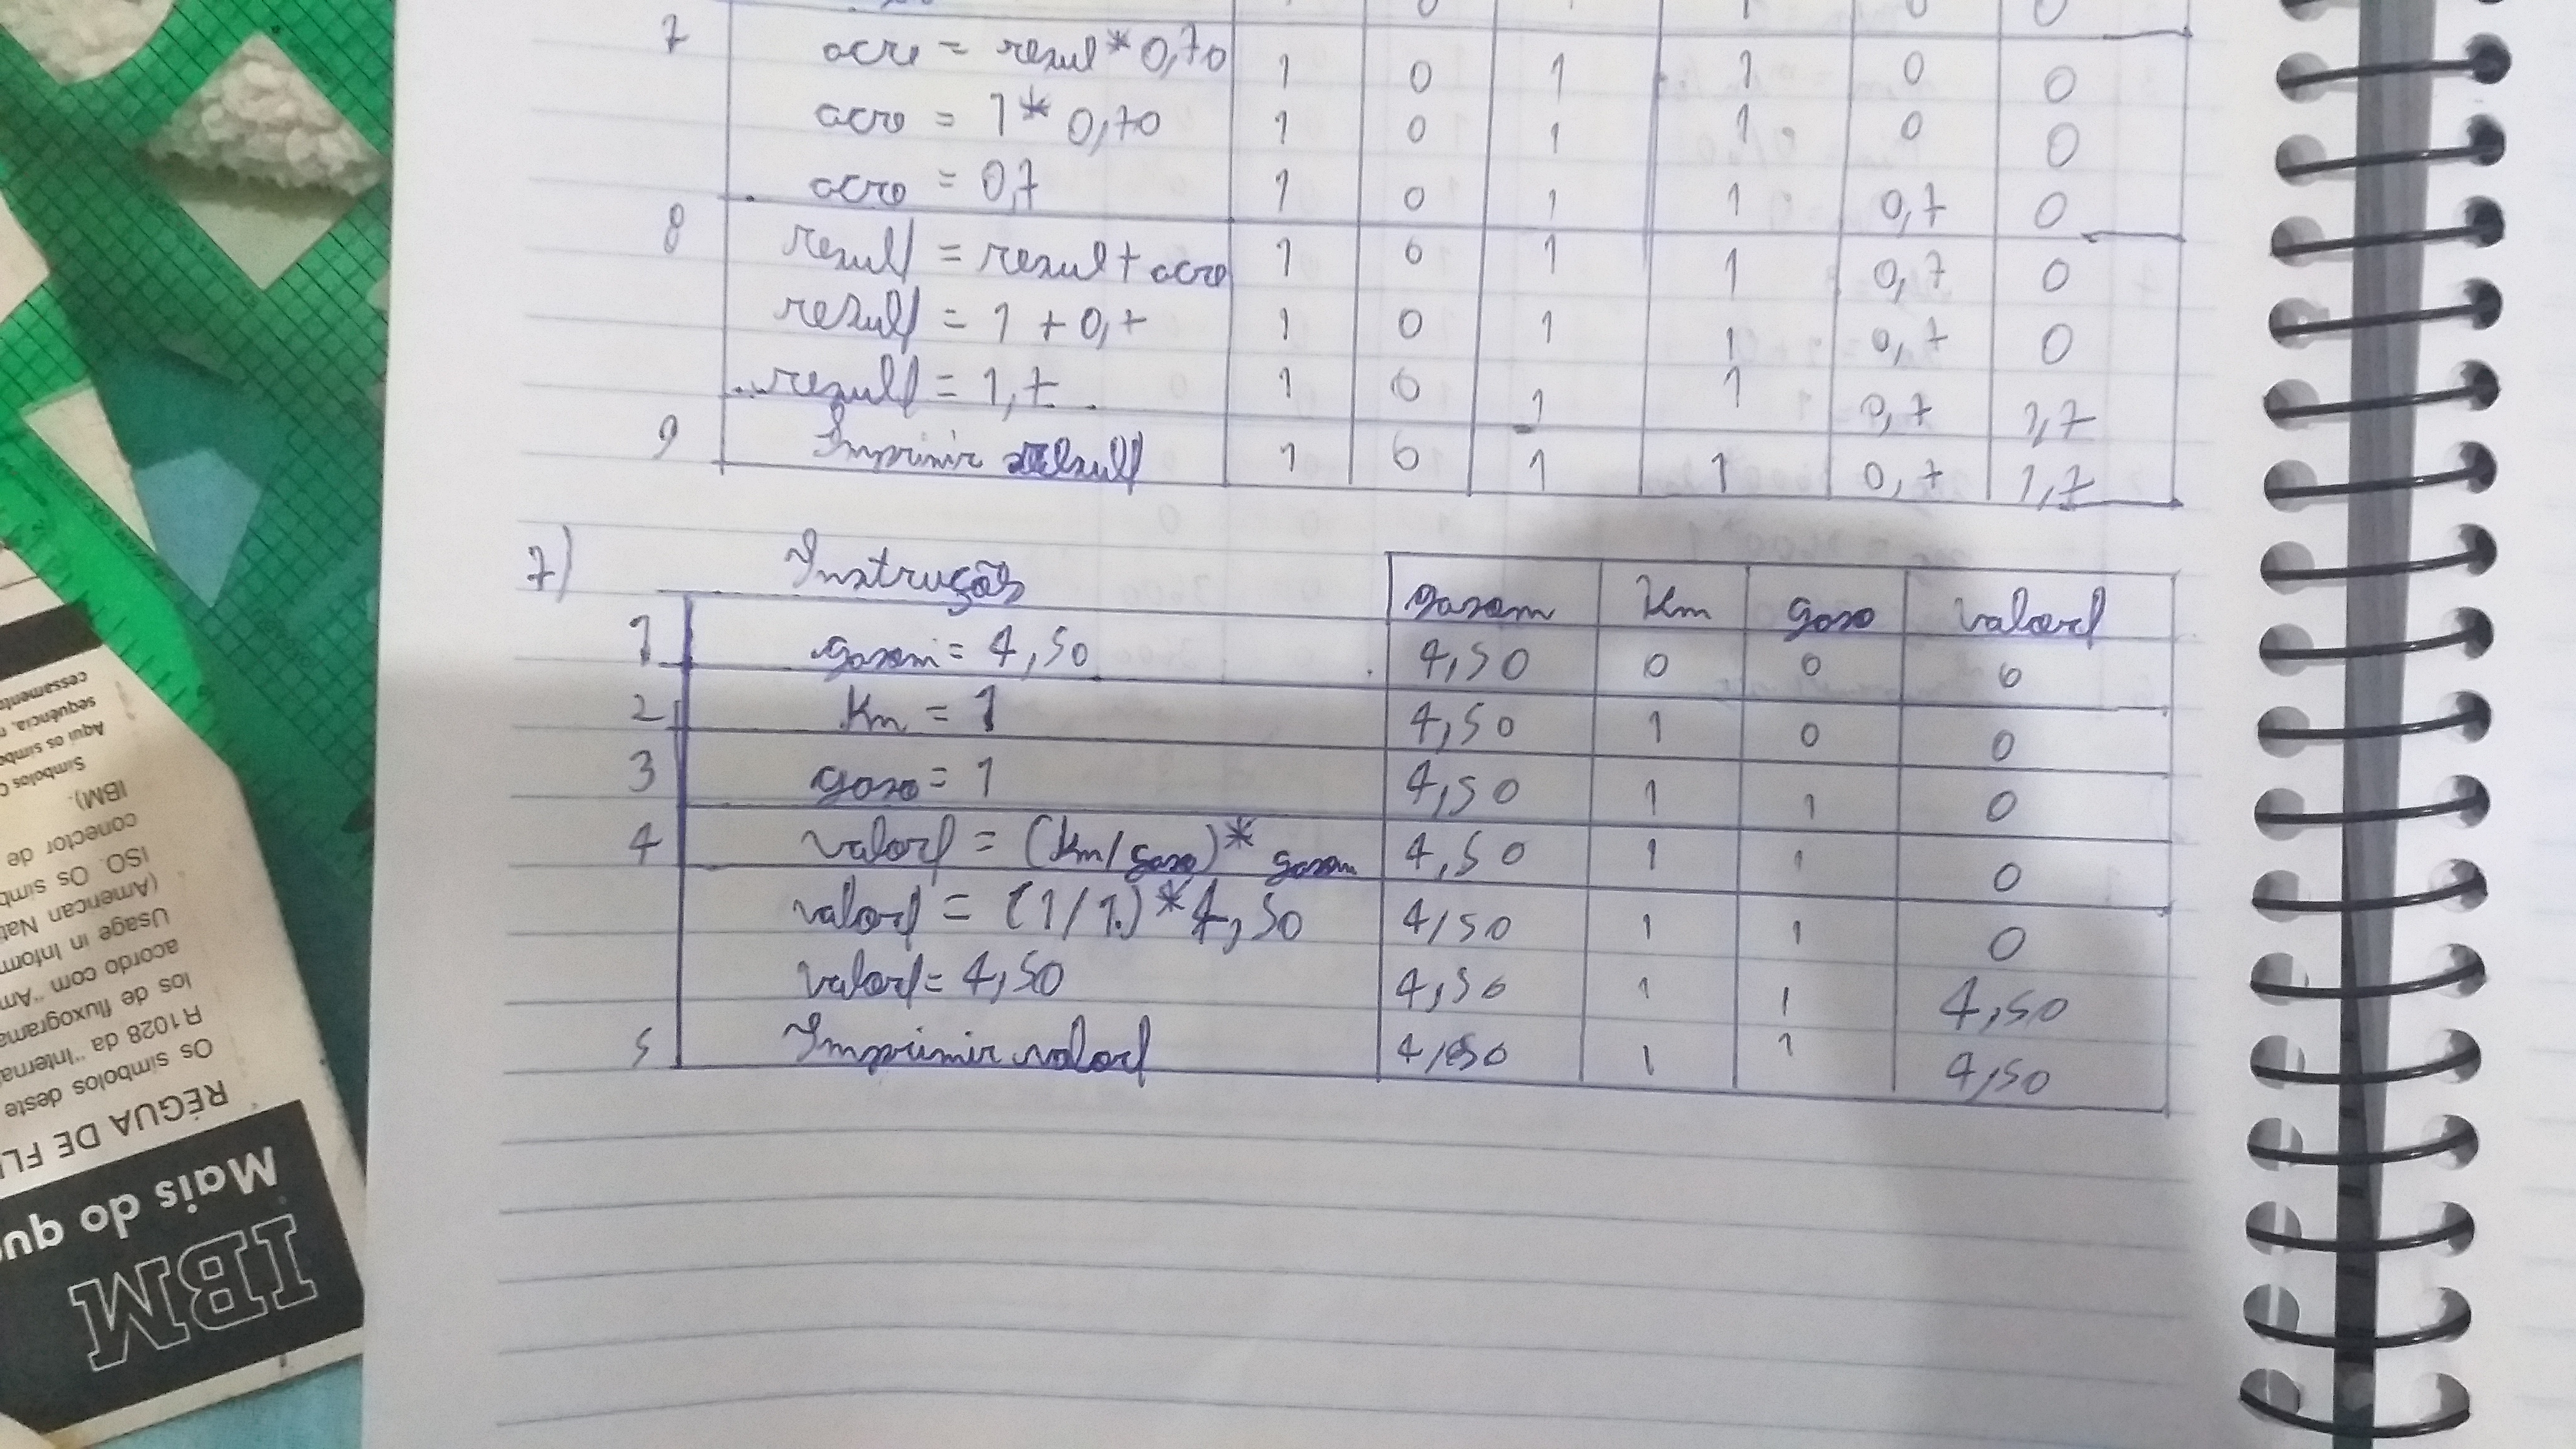 7 acre = resul * 0,70 1 0 1 1 0 0
acre = 1 * 0,70 1 0 1 1 0 0
acre = 0,7 1 0 1 1 0,7 0
8 resulf = resul + acre 1 0 1 1 0,7 0
resulf = 1 + 0,7 1 0 1 1 0,7 0
resulf = 1,7 1 0 1 1 0,7 1,7
9 Imprimir resulf 1 0 1 1 0,7 1,7
7) Instruções gasom Km gaso valorf
1 gasom = 4,50 4,50 0 0 0
2 Km = 1 4,50 1 0 0
3 gaso = 1 4,50 1 1 0
4 valorf = (km/gaso) * gasom 4,50 1 1 0
valorf = (1/1) * 4,50 4,50 1 1 0
valorf = 4,50 4,50 1 1 4,50
5 Imprimir valorf 4,50 1 1 4,50
IBM
Mais do que
RÉGUA DE FL
Os símbolos deste
R 1028 da "Interna
los de fluxograma
acordo com "Am
Usage in Inform
(American Nat
ISO. Os símb
conector de
IBM).
Símbolos
Aqui os símbo
sequência,
cessament